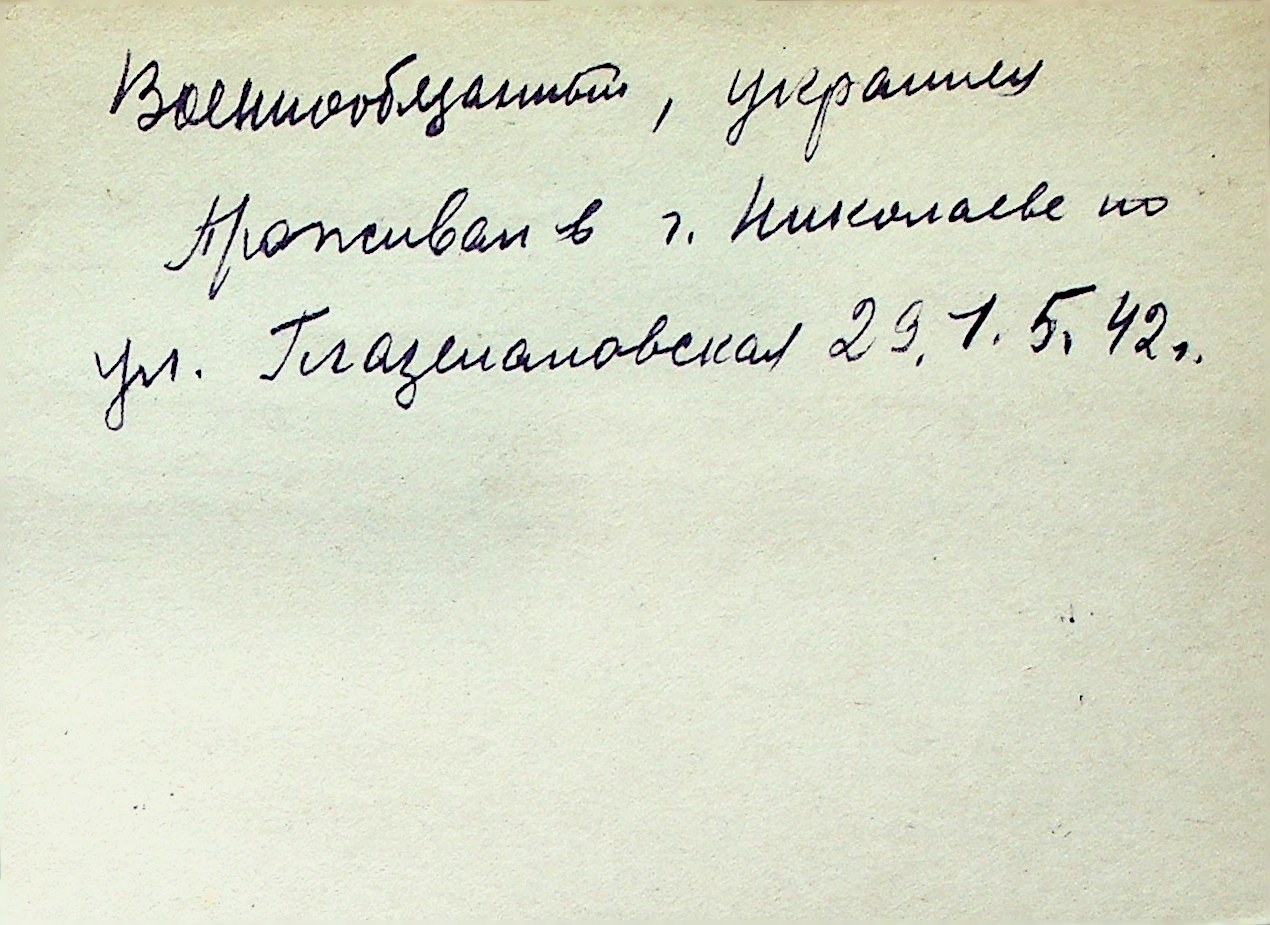 Военнообязанный, украинец
Проживал в г. Николаеве по
ул. Глазенаповская 29, 1. 5. 42 г.